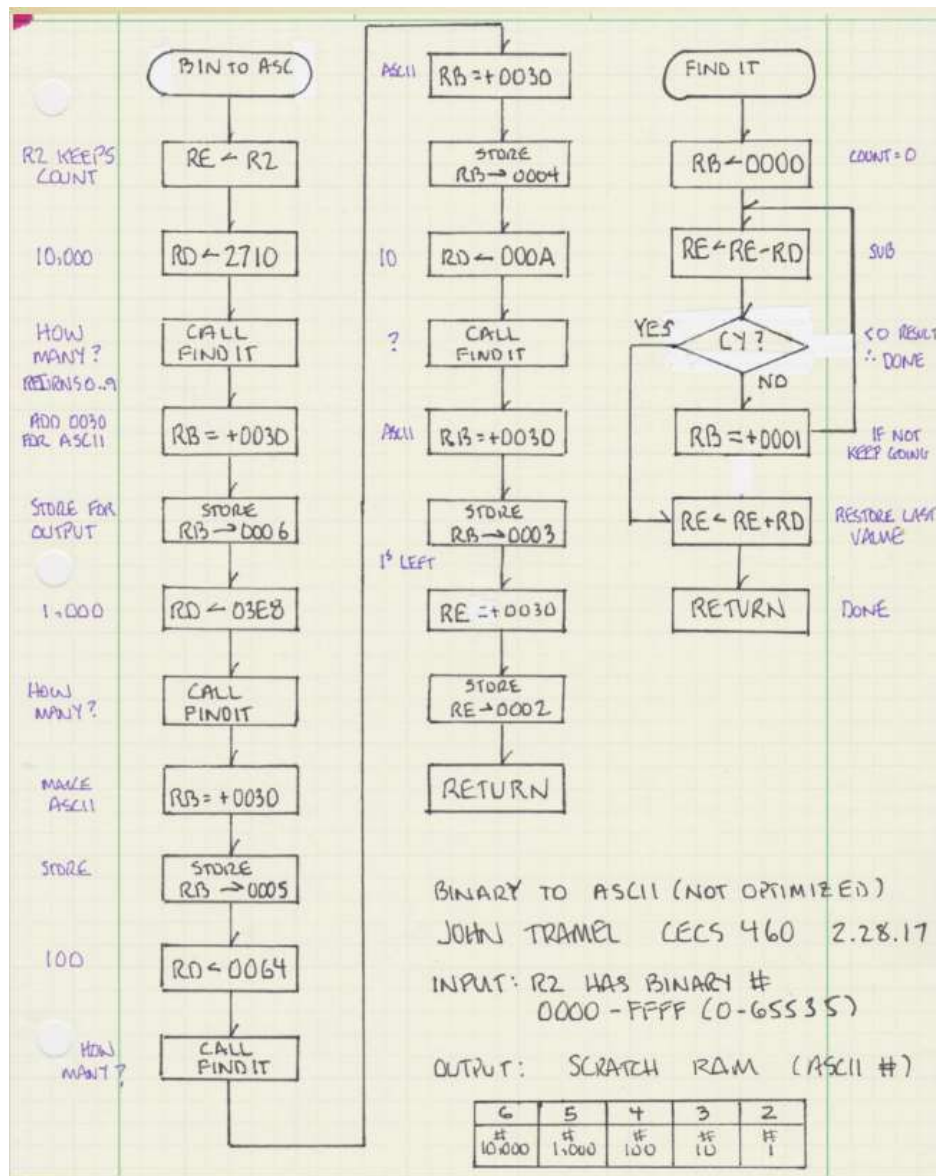 BIN TO ASC
R2 KEEPS
COUNT
RE ← R2
10,000
RD ← 2710
HOW
MANY?
RETURNS 0..9
CALL
FIND IT
ADD 0030
FOR ASCII
RB = +0030
STORE FOR
OUTPUT
STORE
RB → 0006
1,000
RD ← 03E8
HOW
MANY?
CALL
FINDIT
MAKE
ASCII
RB = +0030
STORE
STORE
RB → 0005
100
RD ← 0064
HOW
MANY?
CALL
FINDIT
ASCII
RB = +0030
STORE
RB → 0004
10
RD ← 000A
?
CALL
FINDIT
ASCII
RB = +0030
STORE
RB → 0003
1's LEFT
RE = +0030
STORE
RE → 0002
RETURN
FIND IT
RB ← 0000
COUNT = 0
RE ← RE-RD
SUB
YES
CY?
<0 RESULT
∴ DONE
NO
RB = +0001
IF NOT
KEEP GOING
RE ← RE+RD
RESTORE LAST
VALUE
RETURN
DONE
BINARY TO ASCII (NOT OPTIMIZED)
JOHN TRAMEL CECS 460 2.28.17
INPUT: R2 HAS BINARY #
0000 - FFFF (0-65535)
OUTPUT: SCRATCH RAM (ASCII #)
6 5 4 3 2
# # # # #
10,000 1,000 100 10 1